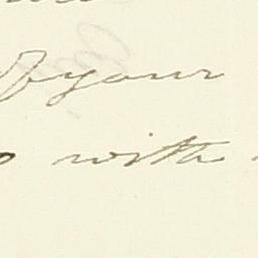 of your
with